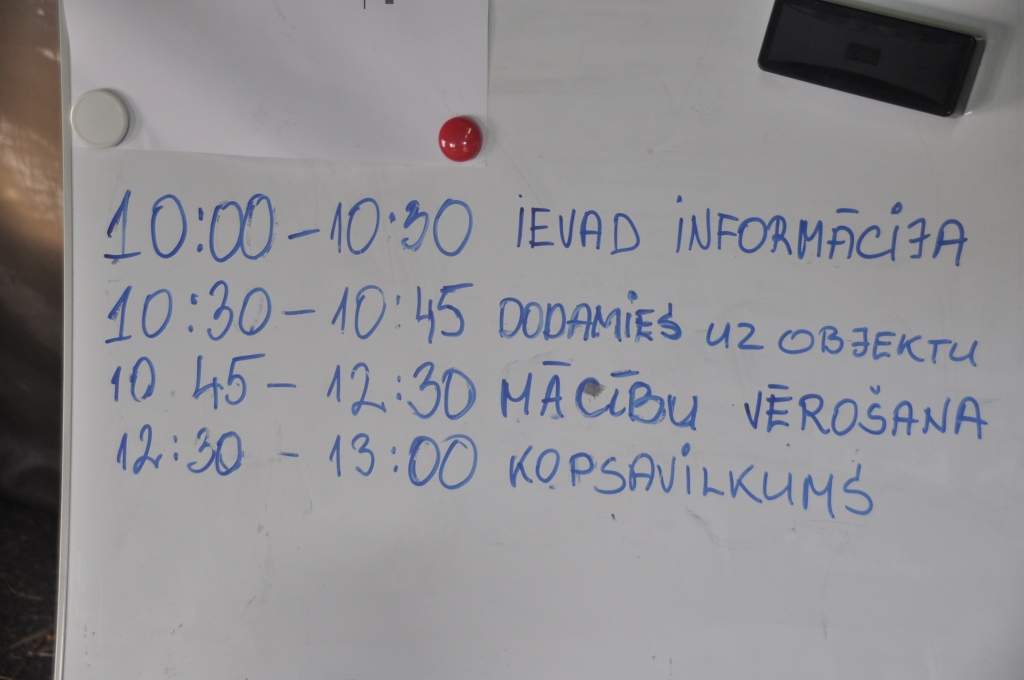 10:00 - 10:30 IEVAD INFORMĀCIJA
10:30 - 10:45 DODAMIES UZ OBJEKTU
10 45 - 12:30 MĀCĪBU VĒROŠANA
12:30 - 13:00 KOPSAVILKUMS